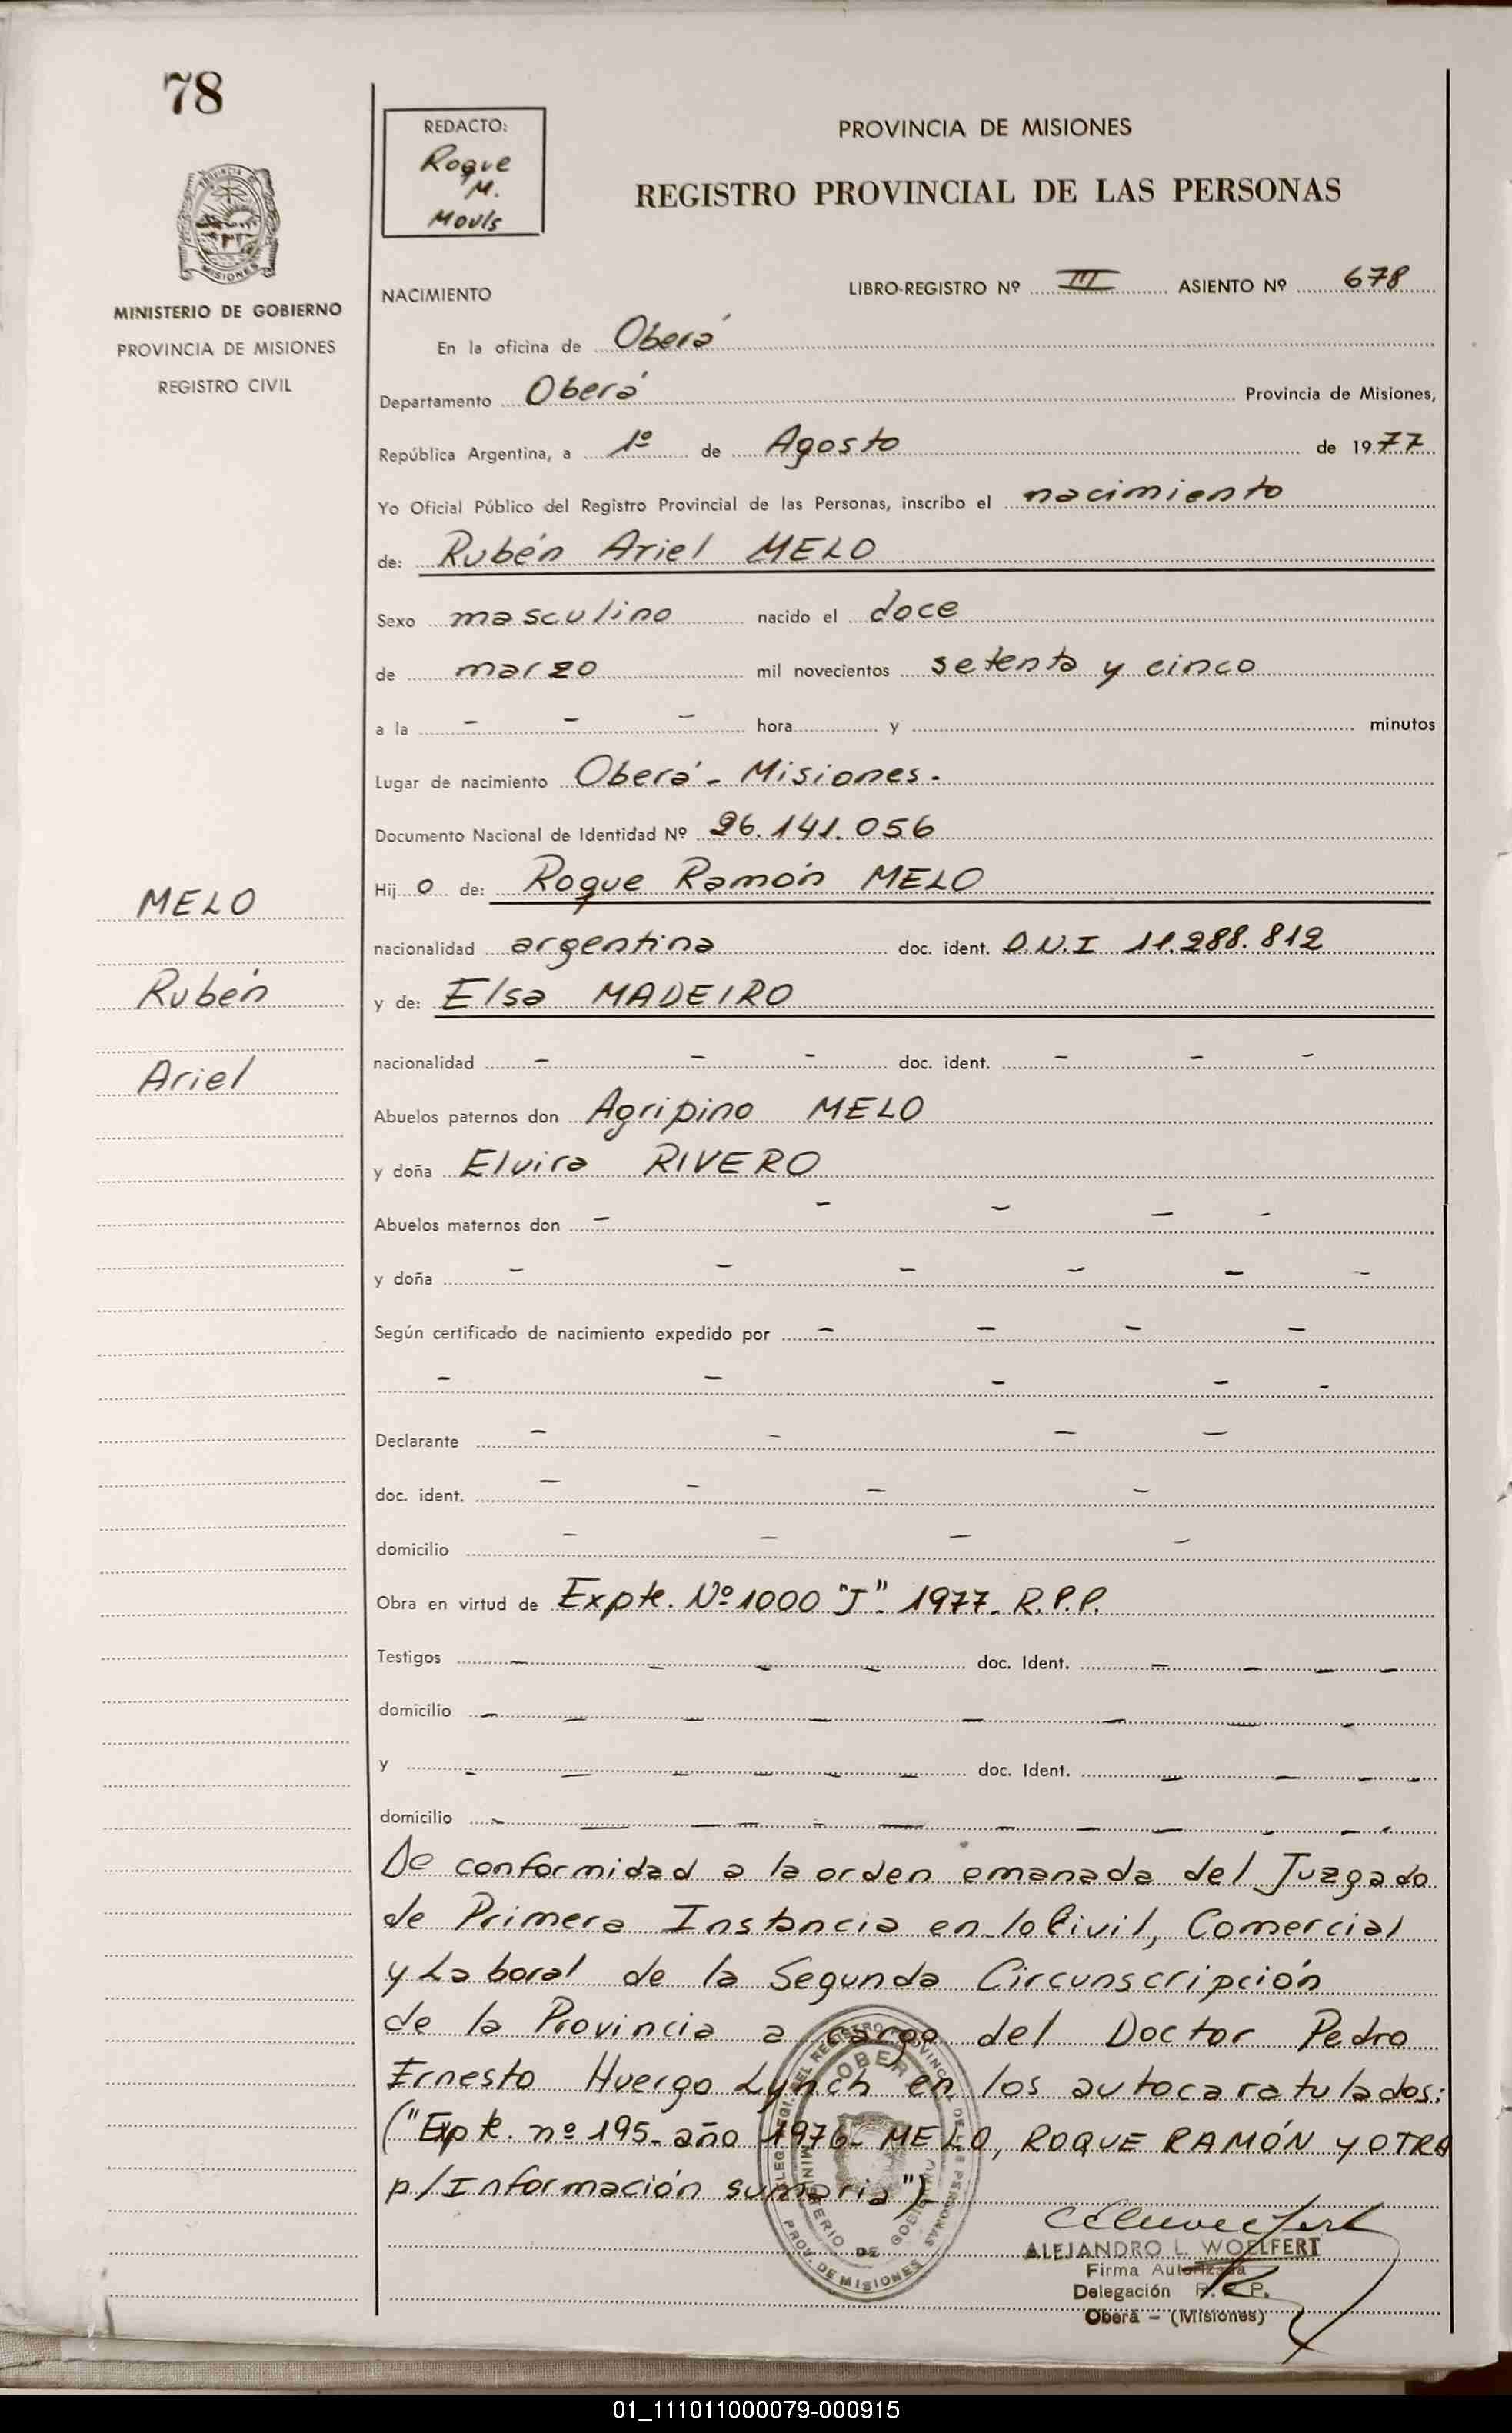 78
REDACTO:
Roque
M.
Mouls
PROVINCIA DE MISIONES
REGISTRO PROVINCIAL DE LAS PERSONAS
MISIONES
MINISTERIO DE GOBIERNO
PROVINCIA DE MISIONES
REGISTRO CIVIL
NACIMIENTO
LIBRO-REGISTRO Nº III ASIENTO Nº 678
En la oficina de Oberá
Departamento Oberá Provincia de Misiones,
República Argentina, a 1º de Agosto de 1977
Yo Oficial Público del Registro Provincial de las Personas, inscribo el nacimiento
de: Rubén Ariel MELO
Sexo masculino nacido el doce
de marzo mil novecientos setenta y cinco
a la - - - hora y minutos
Lugar de nacimiento Oberá - Misiones.
Documento Nacional de Identidad Nº 26.141.056
Hijo de: Roque Ramón MELO
nacionalidad argentina doc. ident. D.N.I 11.288.812
y de: Elsa MADEIRO
nacionalidad - - - doc. ident. - - -
MELO
Rubén
Ariel
Abuelos paternos don Agripino MELO
y doña Elvira RIVERO
Abuelos maternos don - - - - -
y doña - - - - - -
Según certificado de nacimiento expedido por - - - -
- - - - -
Declarante - - - -
doc. ident. - - - -
domicilio - - - -
Obra en virtud de Expte. Nº 1000 "J". 1977. R.P.P.
Testigos - - - - doc. Ident. - - - -
domicilio - - - - - - - -
y - - - - - - doc. Ident. - - - -
domicilio - - - - - - - - - - -
De conformidad a la orden emanada del Juzgado
de Primera Instancia en lo Civil, Comercial
y Laboral de la Segunda Circunscripción
de la Provincia a cargo del Doctor Pedro
Ernesto Huergo Lynch en los autocaratulados:
("Expte. nº 195- año 1976- MELO, ROQUE RAMÓN y OTRA
p/Información sumaria").
ALEJANDRO L. WOELFERT
Firma Autorizada
Delegación R. P. P.
Oberá - (Misiones)
01_111011000079-000915